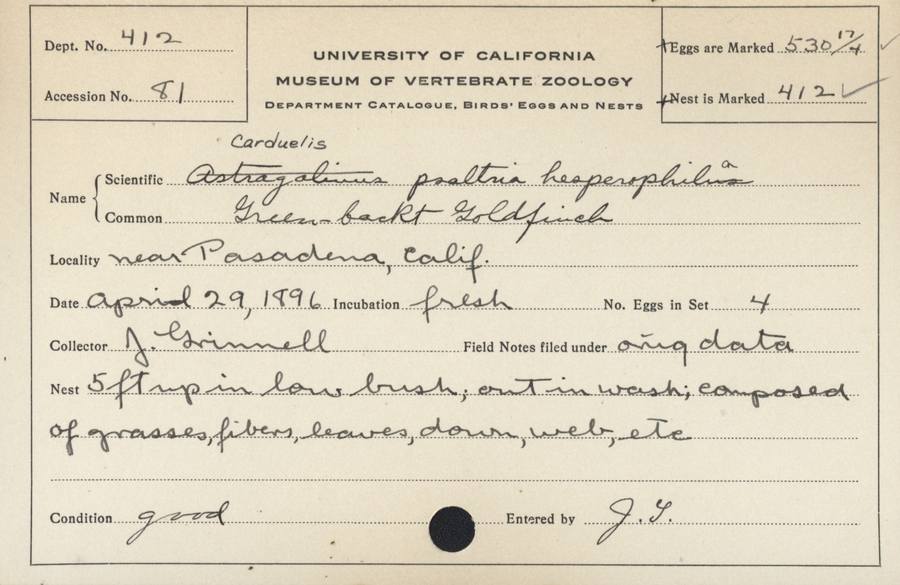 Dept. No. 412
Accession No. 81
UNIVERSITY OF CALIFORNIA
MUSEUM OF VERTEBRATE ZOOLOGY
DEPARTMENT CATALOGUE, BIRDS' EGGS AND NESTS
Eggs are Marked 530 17/4
Nest is Marked 412
Carduelis
Name
Scientific Astragalinus psaltria hesperophilus a
Common Green-backt Goldfinch
Locality near Pasadena, Calif.
Date April 29, 1896 Incubation fresh No. Eggs in Set 4
Collector J. Grinnell Field Notes filed under orig data
Nest 5 ft up in low bush; out in wash; composed
of grasses, fibers, leaves, down, web, etc
Condition good Entered by J. G.